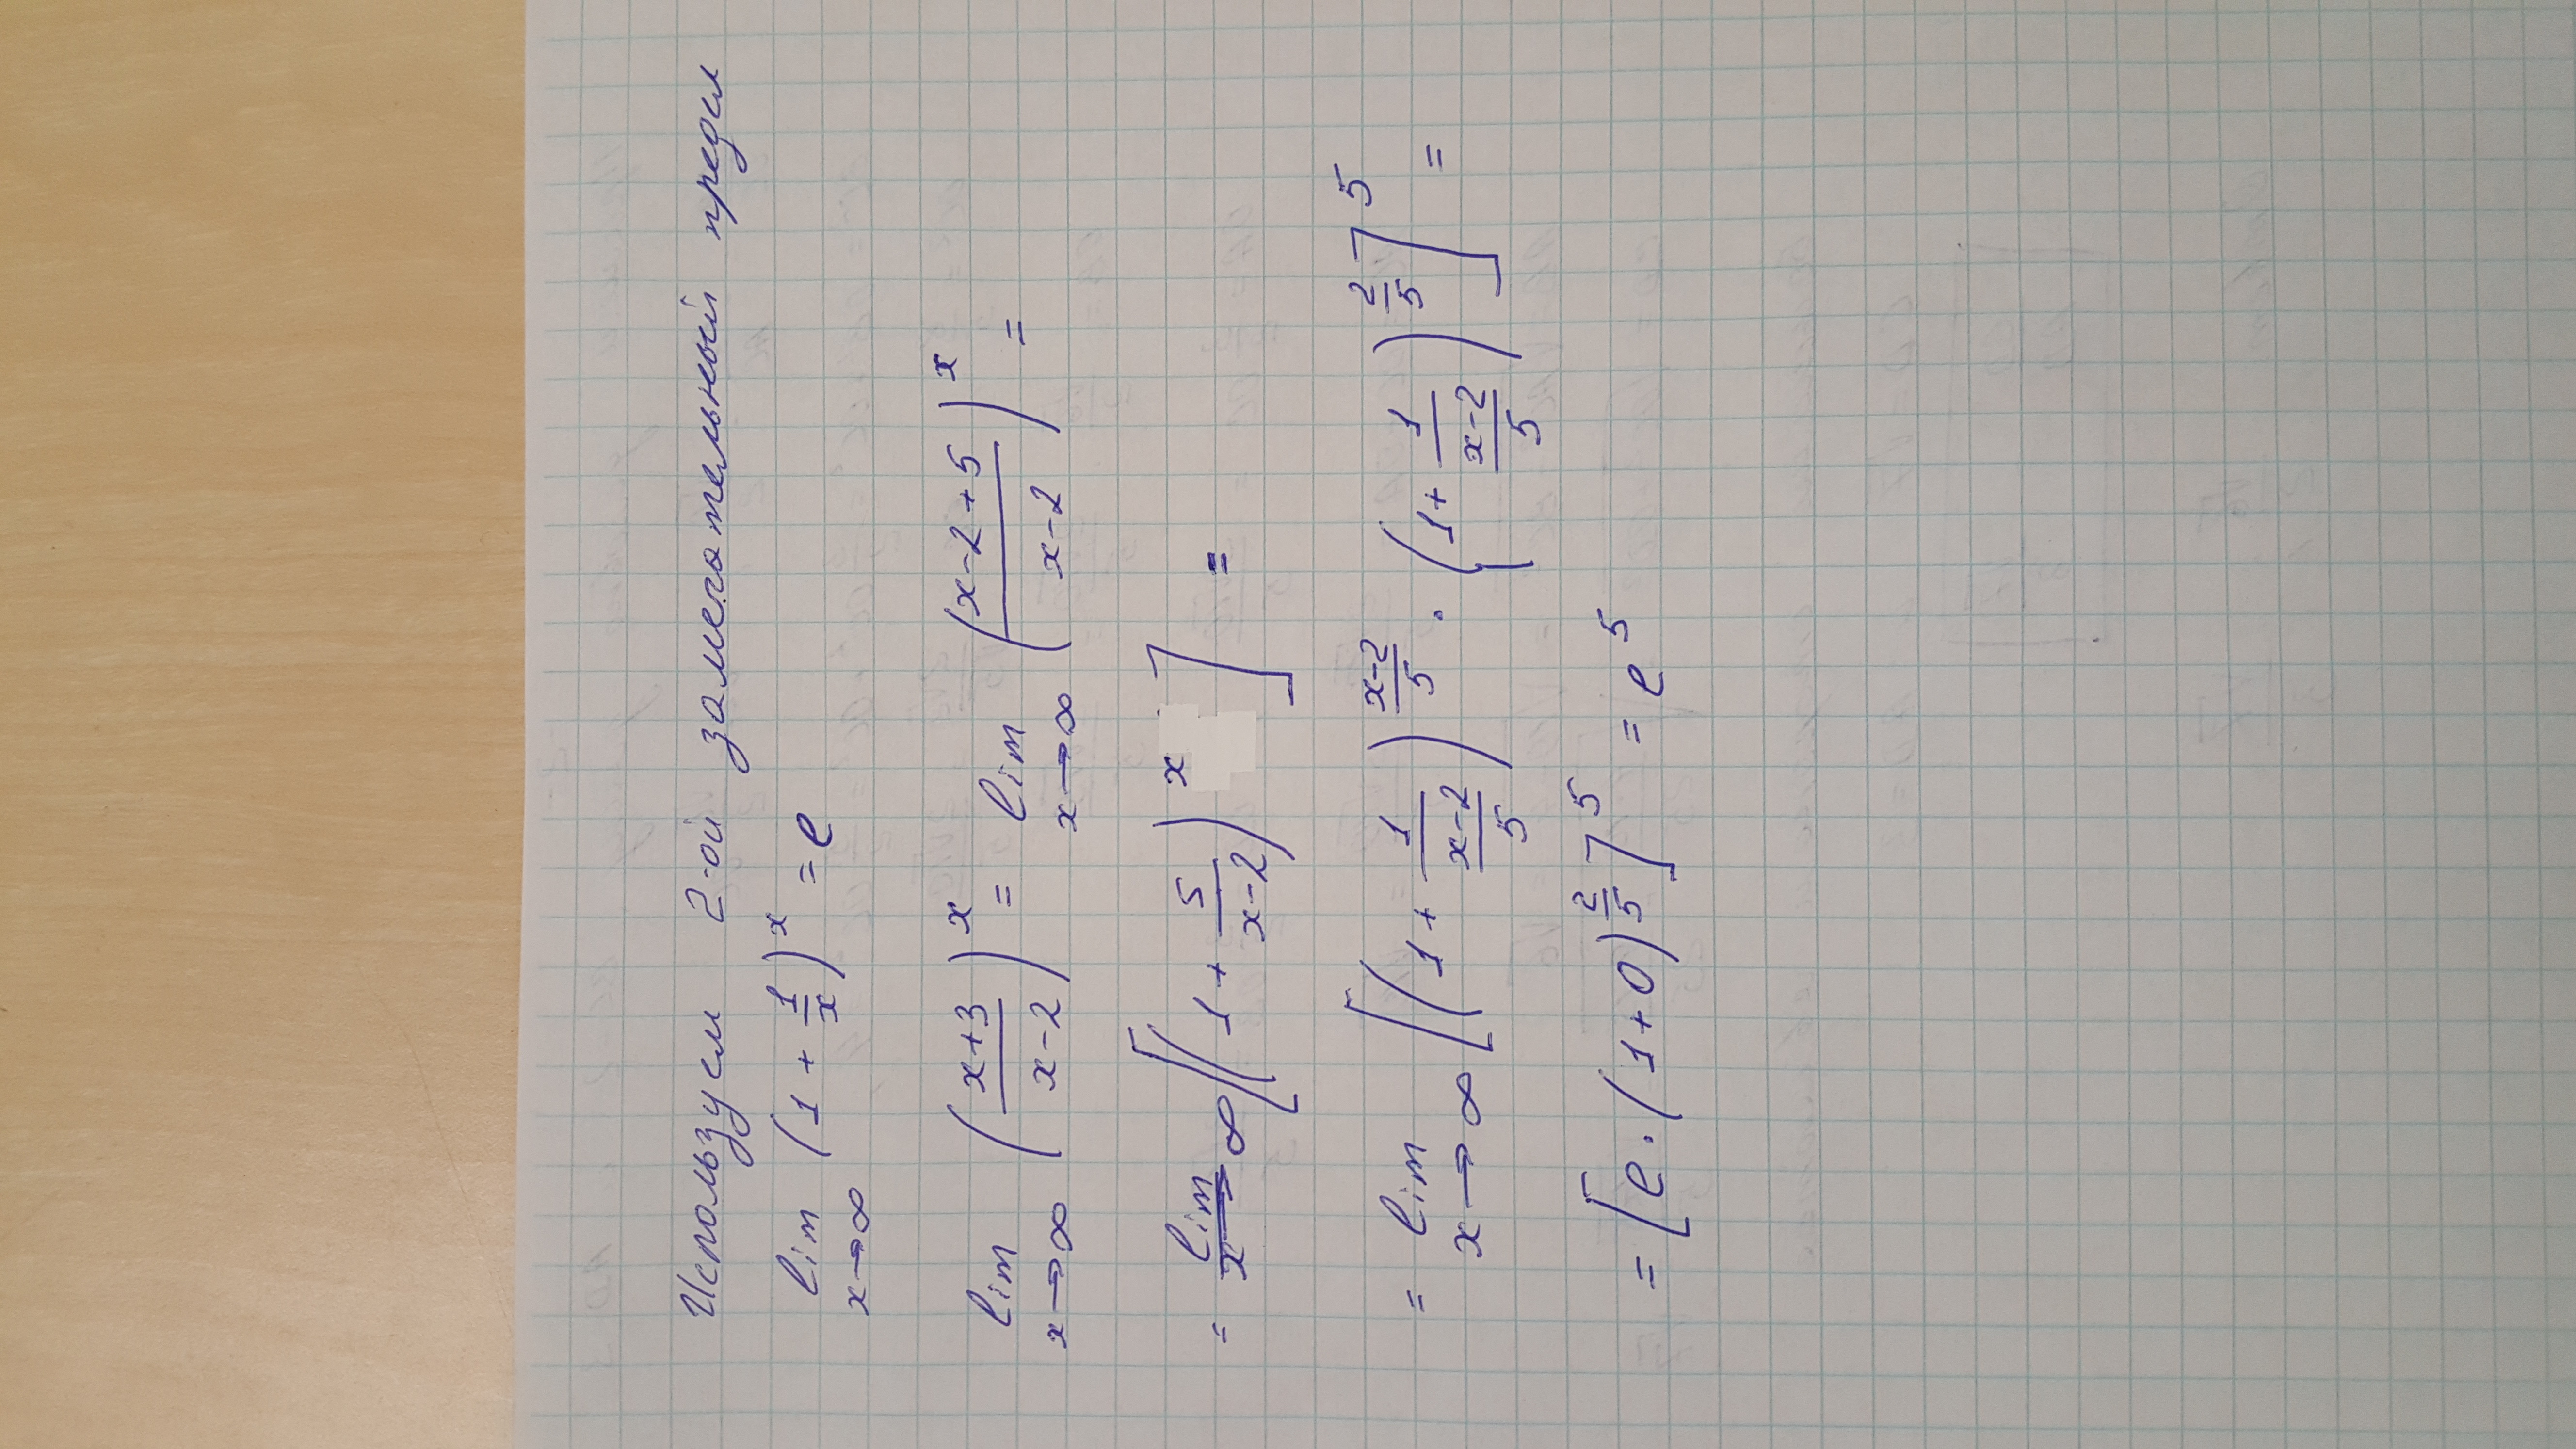 Используем 2-ой замечательный предел
lim x→∞ (1 + 1/x)^x = e
lim x→∞ ((x+3)/(x-2))^x = lim x→∞ ((x-2+5)/(x-2))^x =
= lim x→∞ [(1 + 5/(x-2))^x] =
= lim x→∞ [(1 + 1/((x-2)/5))^((x-2)/5) · (1 + 1/((x-2)/5))^(2/5)]^5 =
= [e · (1+0)^(2/5)]^5 = e^5